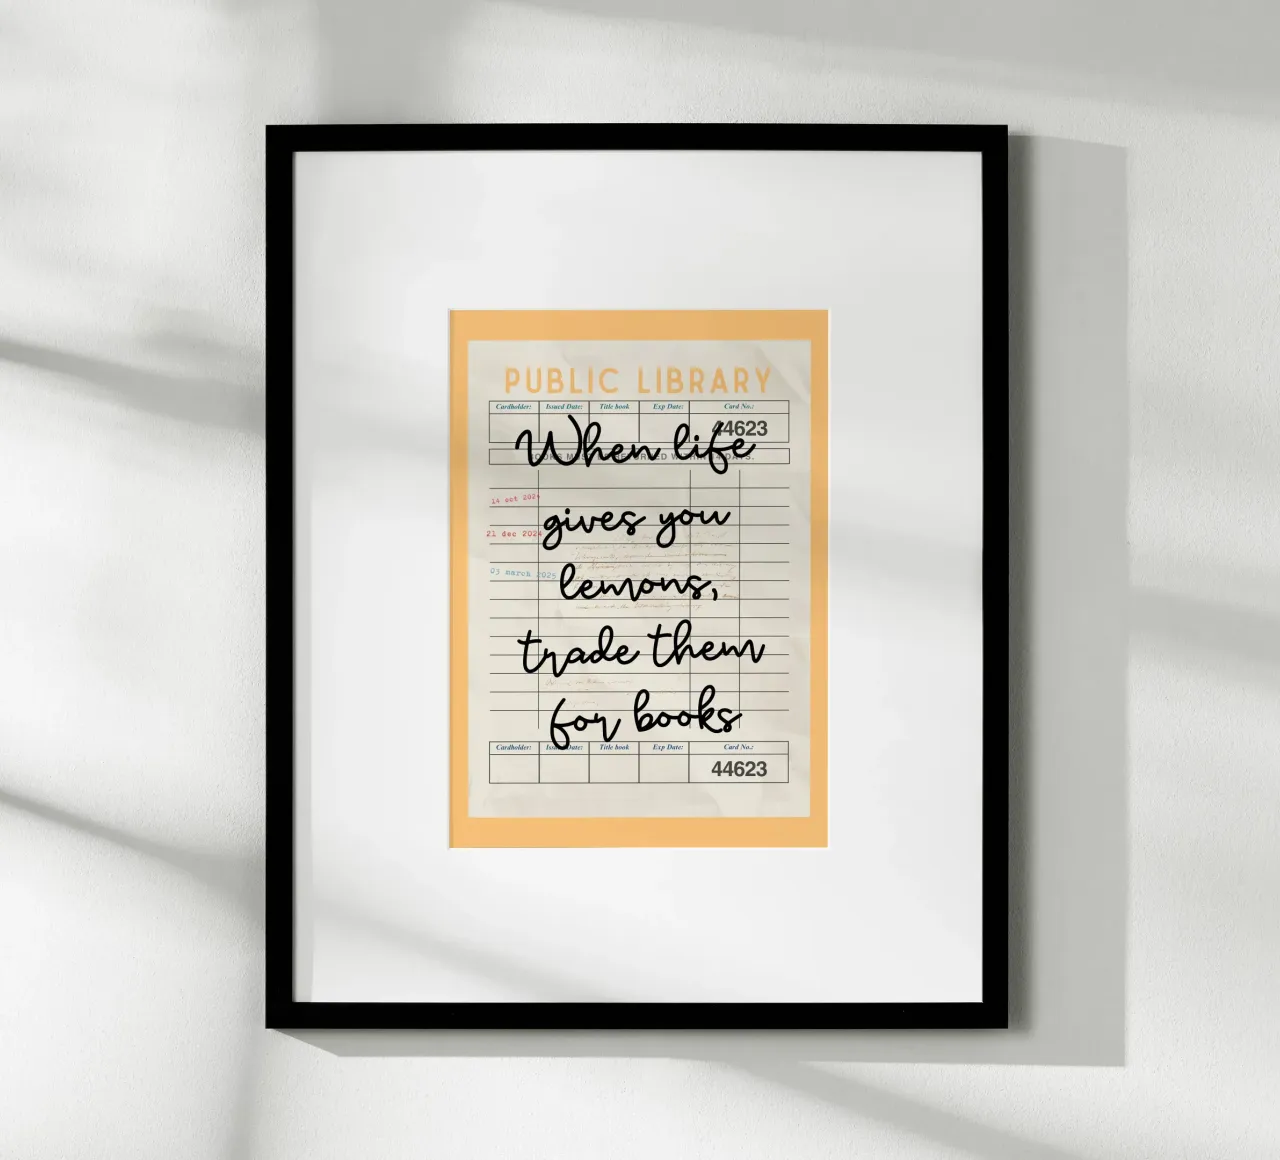 PUBLIC LIBRARY
Cardholder: Issued Date: Title book Exp Date: Card No.:
44623
When life
BOOKS MUST BE RETURNED WITHIN 14 DAYS.
14 oct 2024
gives you
21 dec 2024
03 march 2025
lemons,
trade them
for books
Cardholder: Issued Date: Title book Exp Date: Card No.:
44623